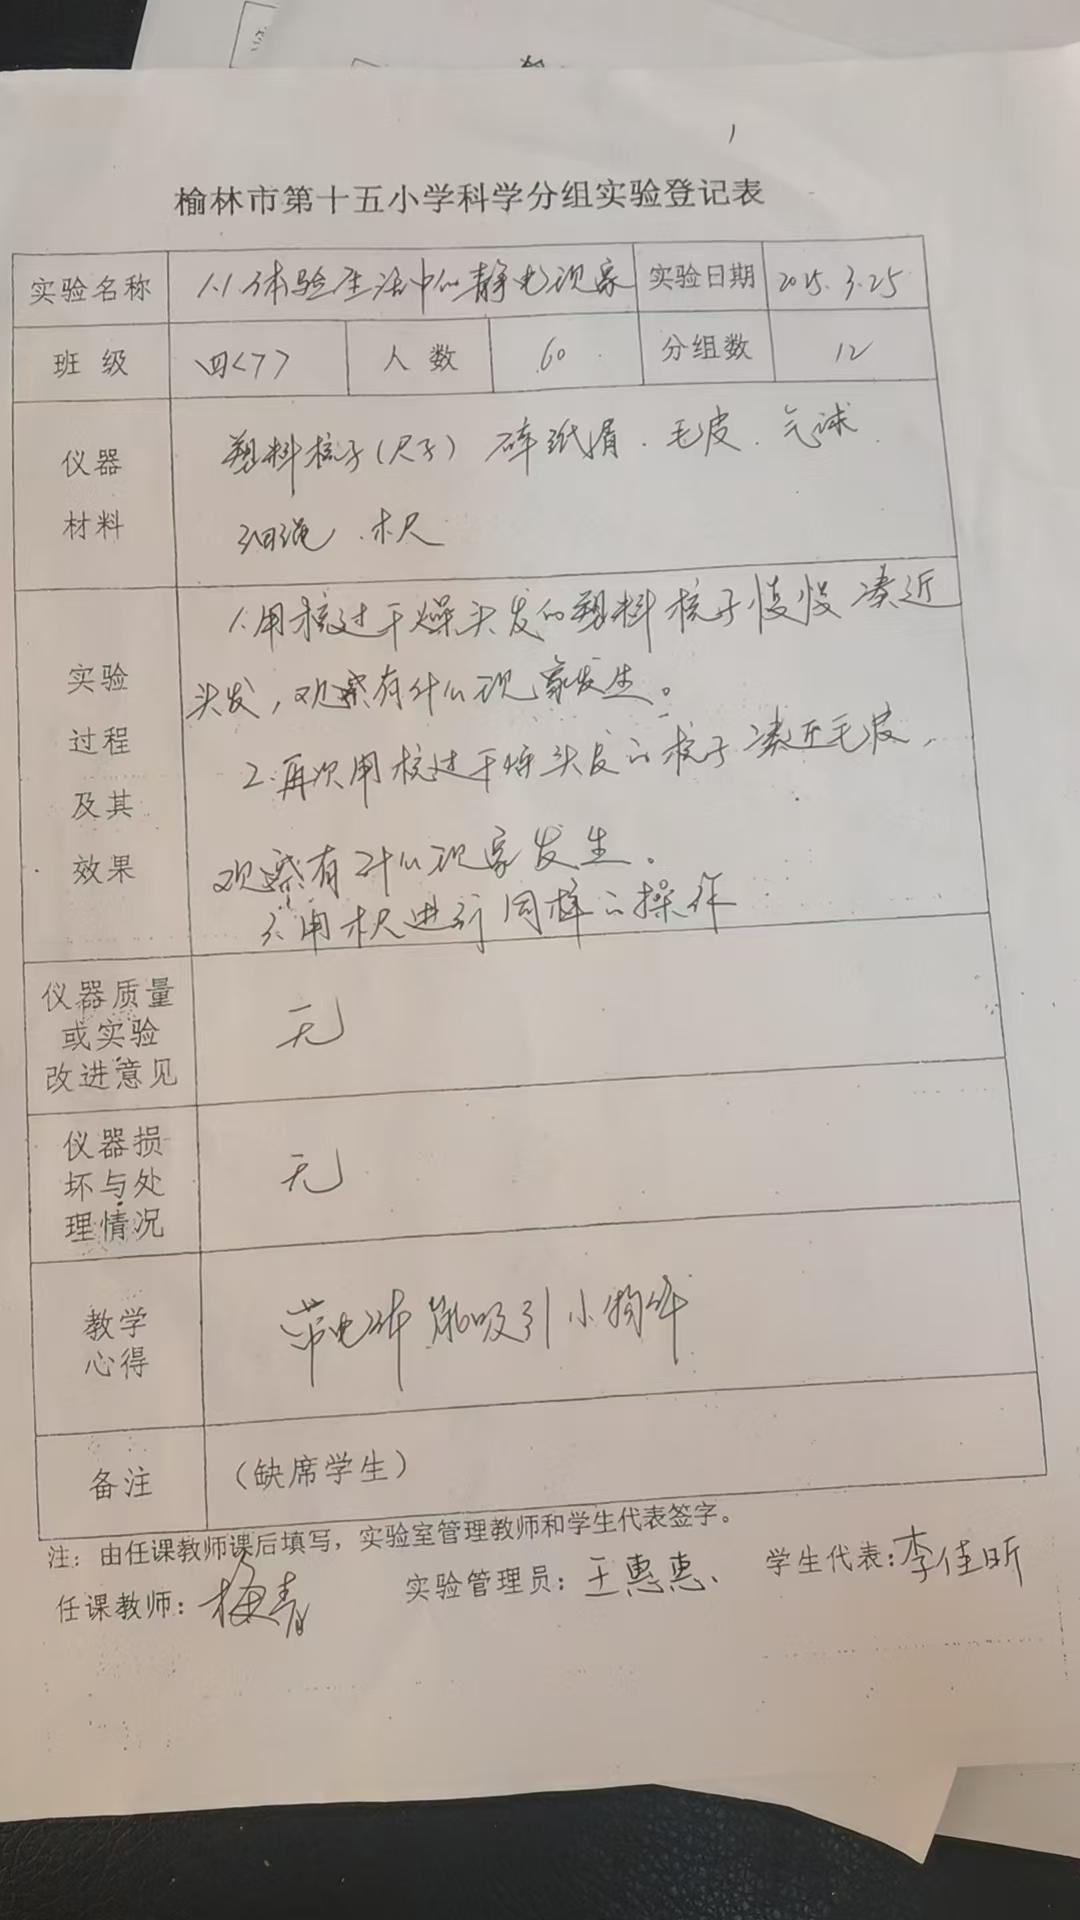 1
榆林市第十五小学科学分组实验登记表
实验名称 1.1体验生活中的静电现象 实验日期 2025.3.25
班 级 四<7> 人 数 60 分组数 12
仪器 塑料梳子(尺子) 碎纸屑.毛皮.气球.
材料 细绳.木尺
1.用梳过干燥头发的塑料梳子慢慢凑近
实验 头发,观察有什么现象发生。
过程 2.再次用梳过干燥头发的梳子凑近毛皮,
及其
效果 观察有什么现象发生.
3.用木尺进行同样的操作
仪器质量
或实验 无
改进意见
仪器损
坏与处 无
理情况
教学 带电体能吸引小物体
心得
备注 (缺席学生)
注:由任课教师课后填写,实验室管理教师和学生代表签字。
任课教师:梅青 实验管理员:王惠惠、 学生代表:李佳昕